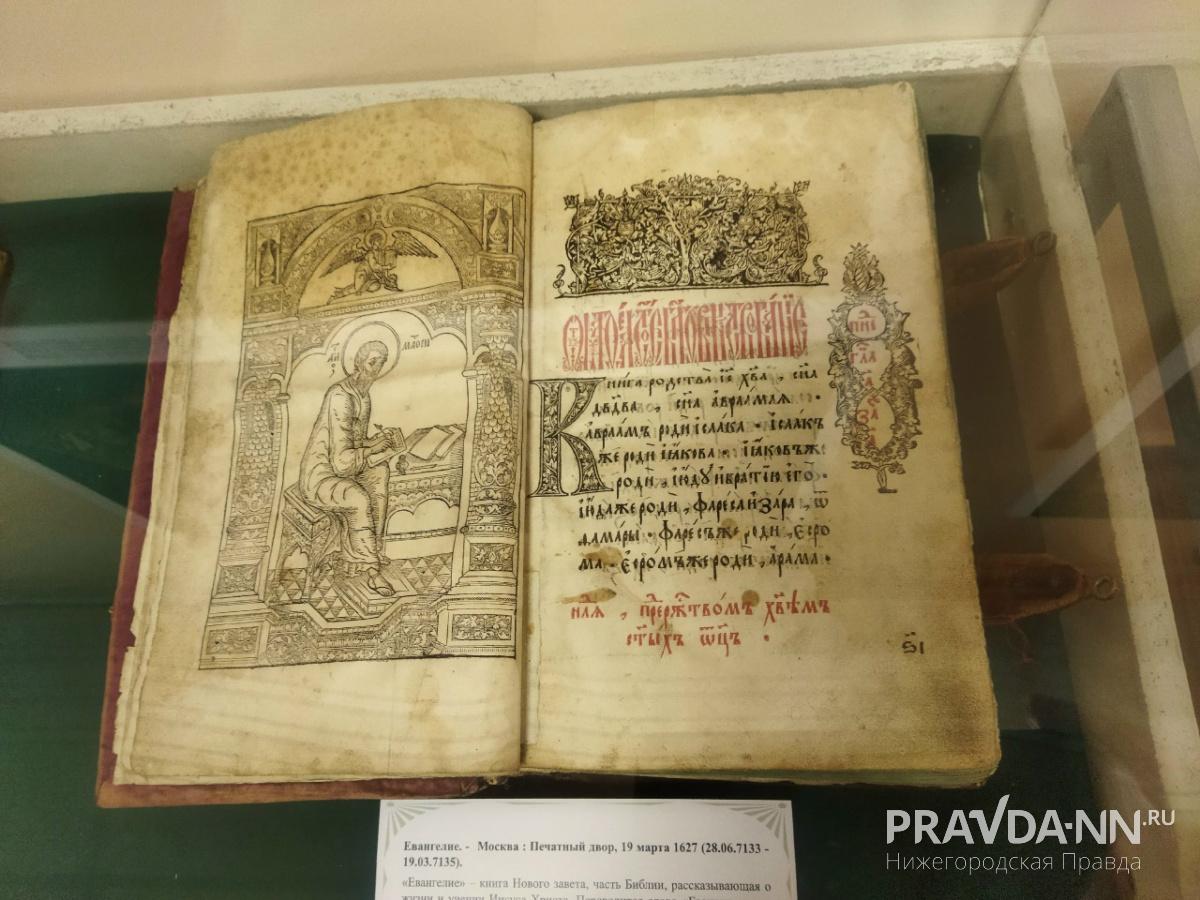 МАѲЕИ
Ѿ МАТѲЕ́Ѧ СТО́Е БЛГОВѢСТВОВА́НЇЕ
Кни́га родства̀ і҆с҃ хв҃а, сн҃а
дв҃два, сн҃а а҆враа́млѧ.
а҆враа́мъ родѝ і҆саа́ка. і҆саа́къ
же родѝ і҆а́кова. і҆а́ковъ же
родѝ, і҆ю́дꙋ и҆ бра́тїю є҆го̀.
і҆ю́да же родѝ, фаре́са и҆ за́ра, ѿ
ѳама́ры. фаре́съ же родѝ, є҆сро́
ма. є҆сро́мъ же родѝ, а҆ра́ма.
пред̾ ржⷭ҇тво́мъ хв҃ымъ
ст҃ы́хъ ѻ҆ц҃ъ.
ѕ҃і
Евангелие. - Москва : Печатный двор, 19 марта 1627 (28.06.7133 -
19.03.7135).
«Евангелие» – книга Нового завета, часть Библии, рассказывающая о
жизни и учении Иисуса Христа.
PRAVDA-NN.RU
Нижегородская Правда